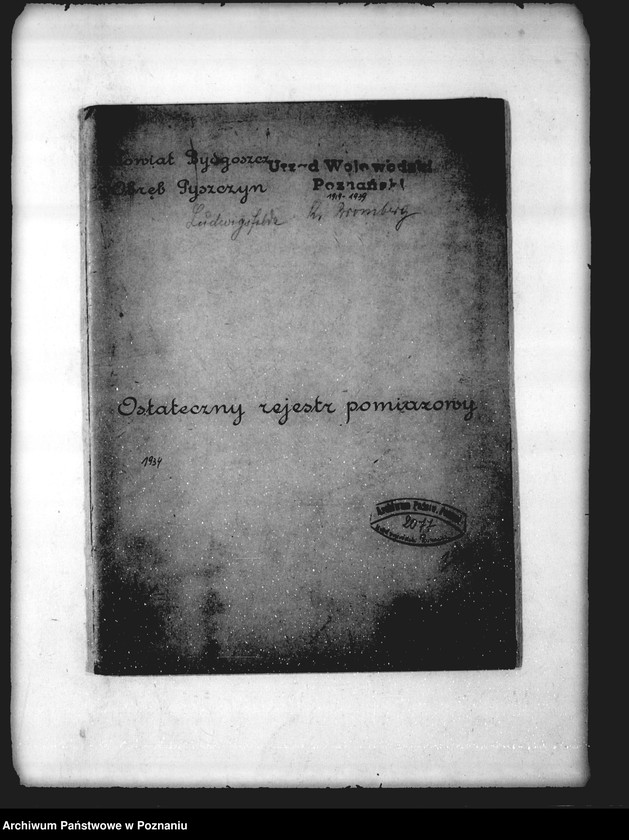 Powiat Bydgoszcz
Obręb Pyszczyn
Urząd Wojewódzki
Poznański
1919-1939
Ludwigsfelde Kr. Bromberg
Ostateczny rejestr pomiarowy
1934
Archiwum Państw. Poznań
2077
Archiwum Państwowe w Poznaniu